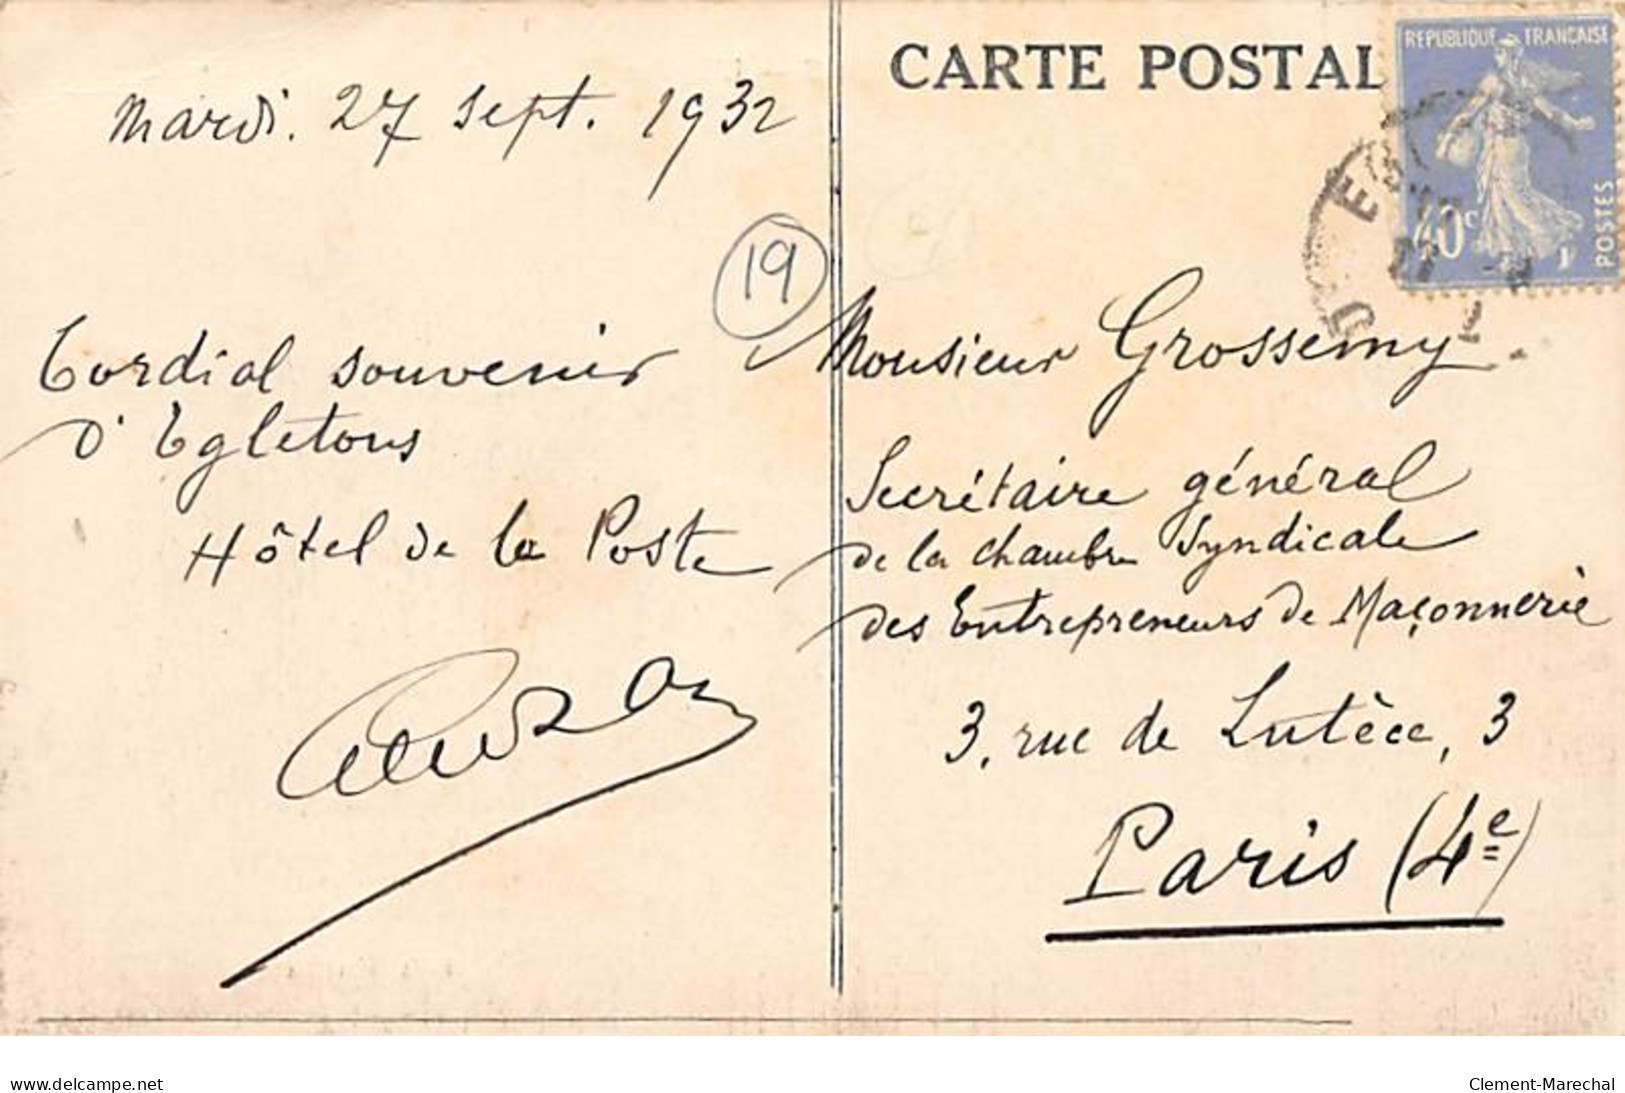 CARTE POSTAL
REPUBLIQUE FRANÇAISE
40c
POSTES
Mardi. 27 Sept. 1932
19
Cordial souvenir
d'Egletons
Hôtel de la Poste
Monsieur Grossemy
Secrétaire général
de la Chambre Syndicale
des Entrepreneurs de Maçonnerie
3, rue de Lutèce, 3
Paris (4e)
delcampe.net
Clement-Marechal